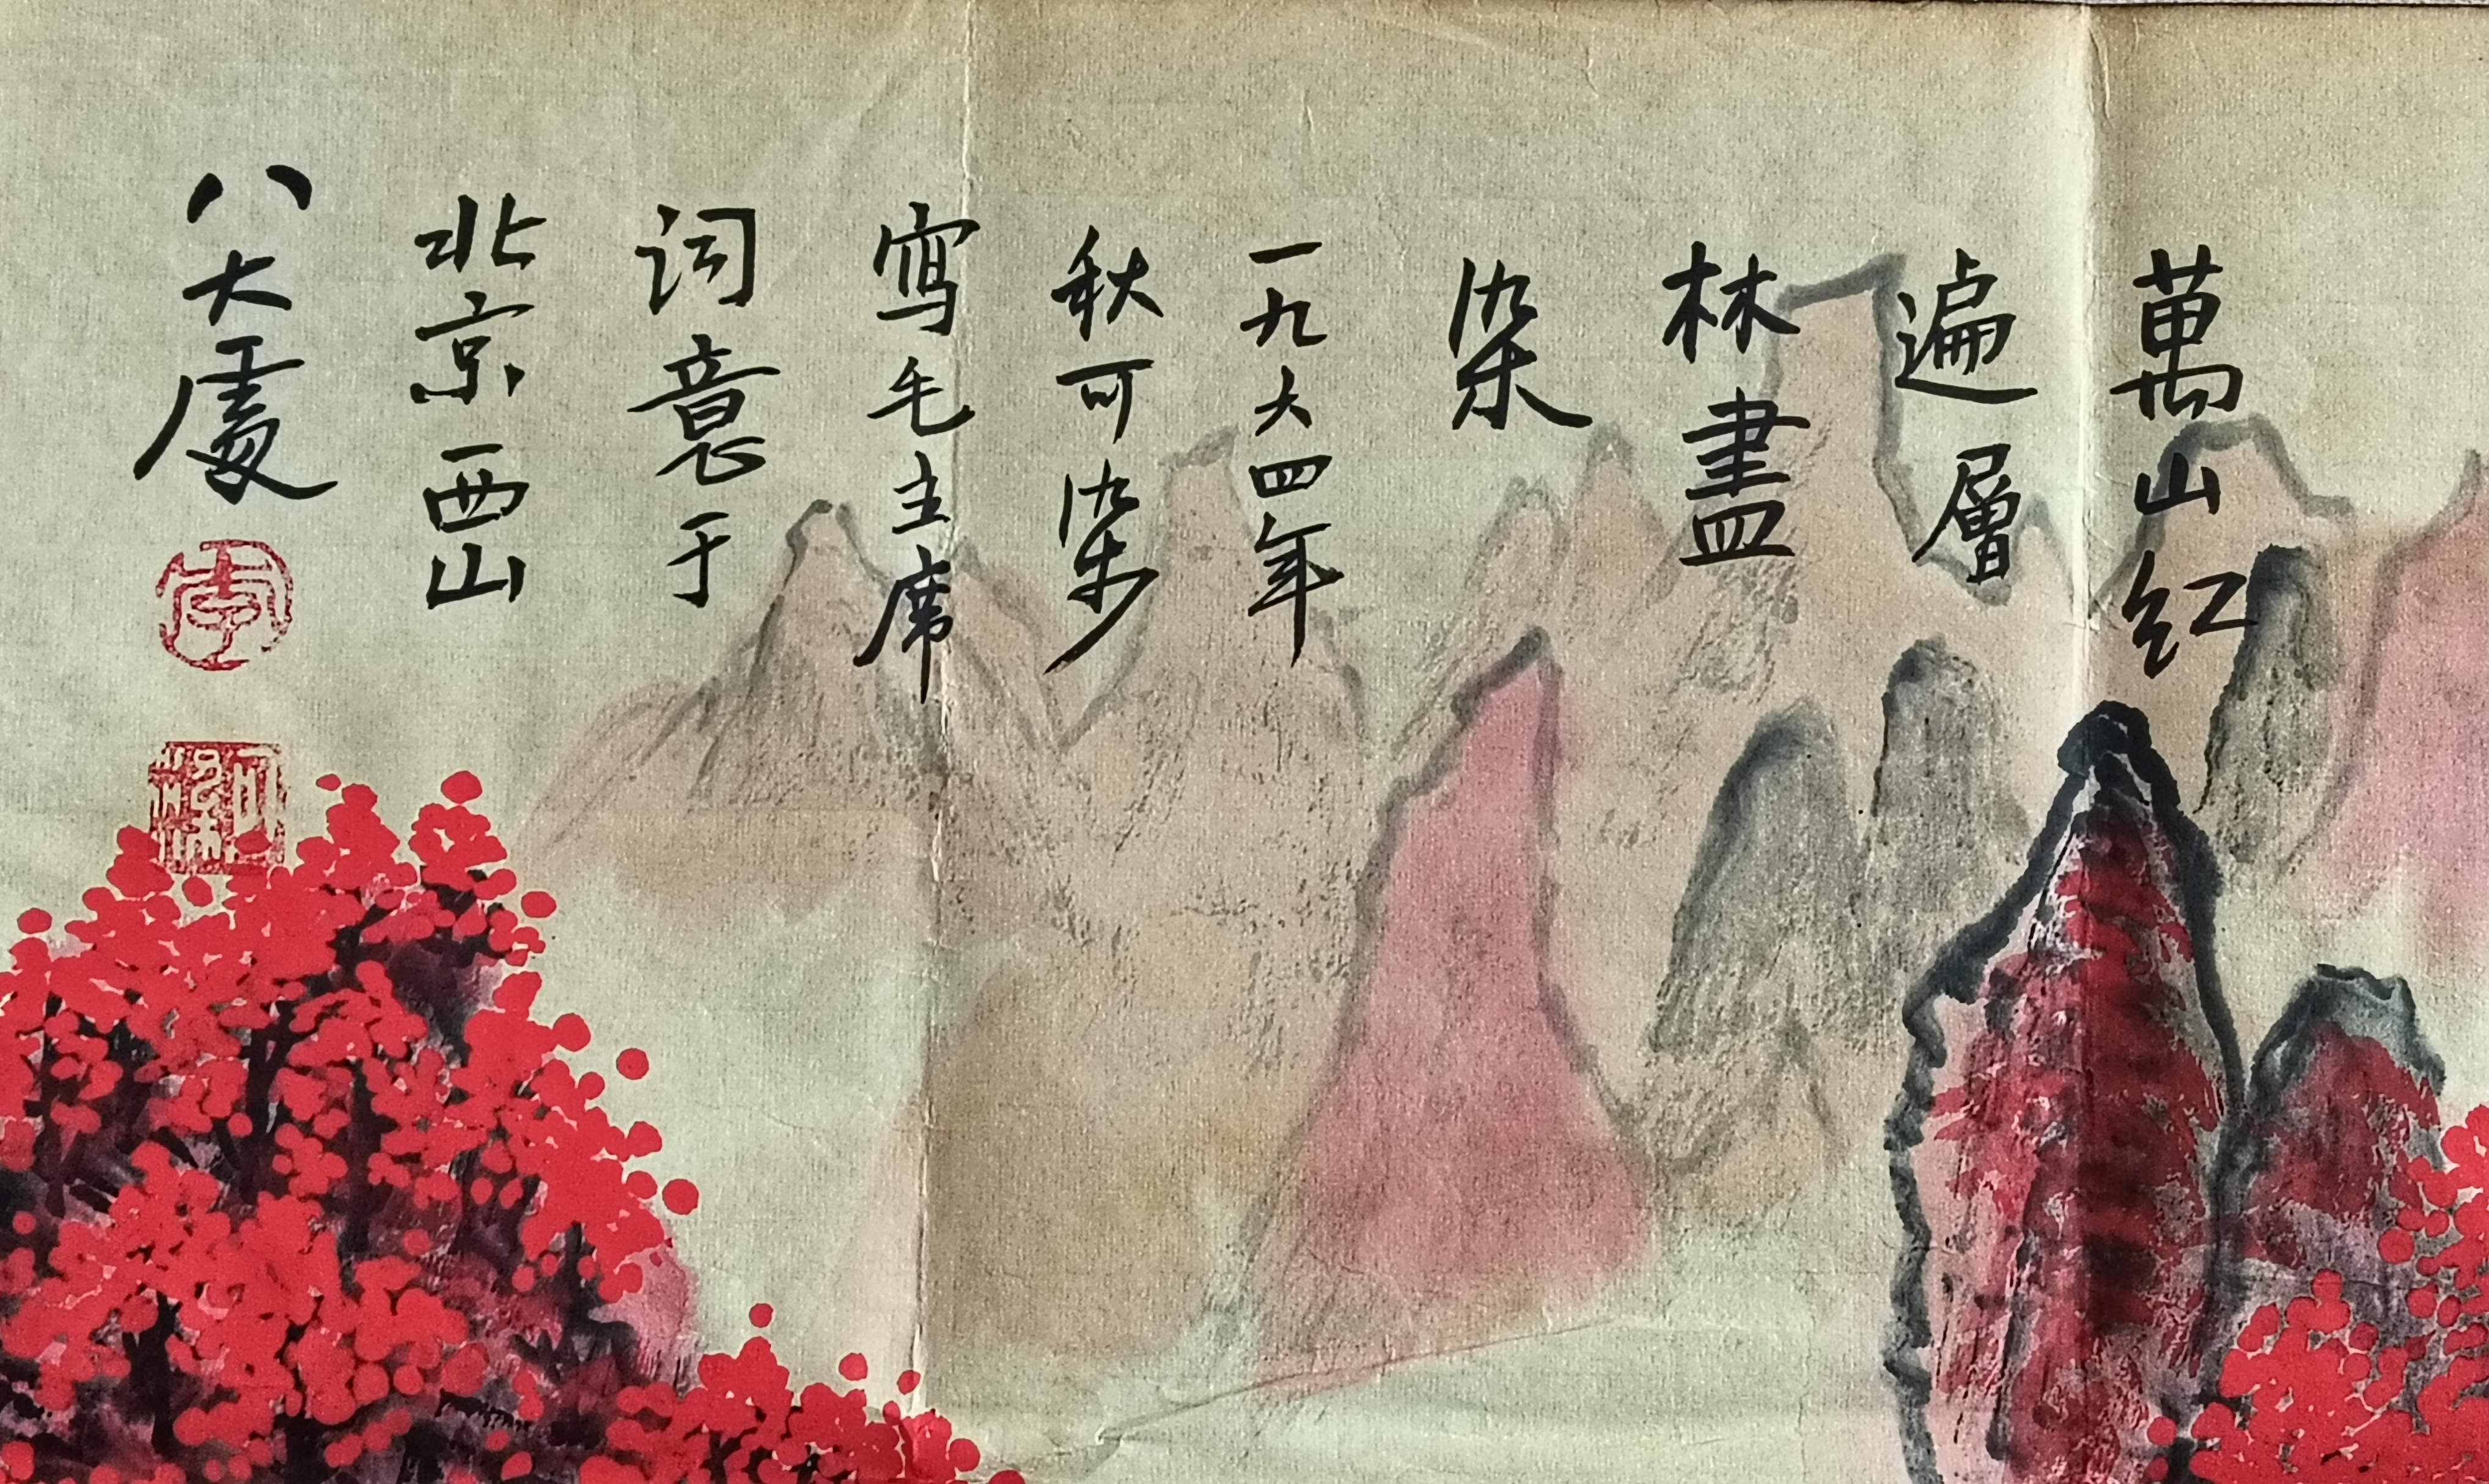 萬山红
遍層
林盡
染
一九六四年
秋可染
寫毛主席
词意于
北京西山
八大處
李
可染